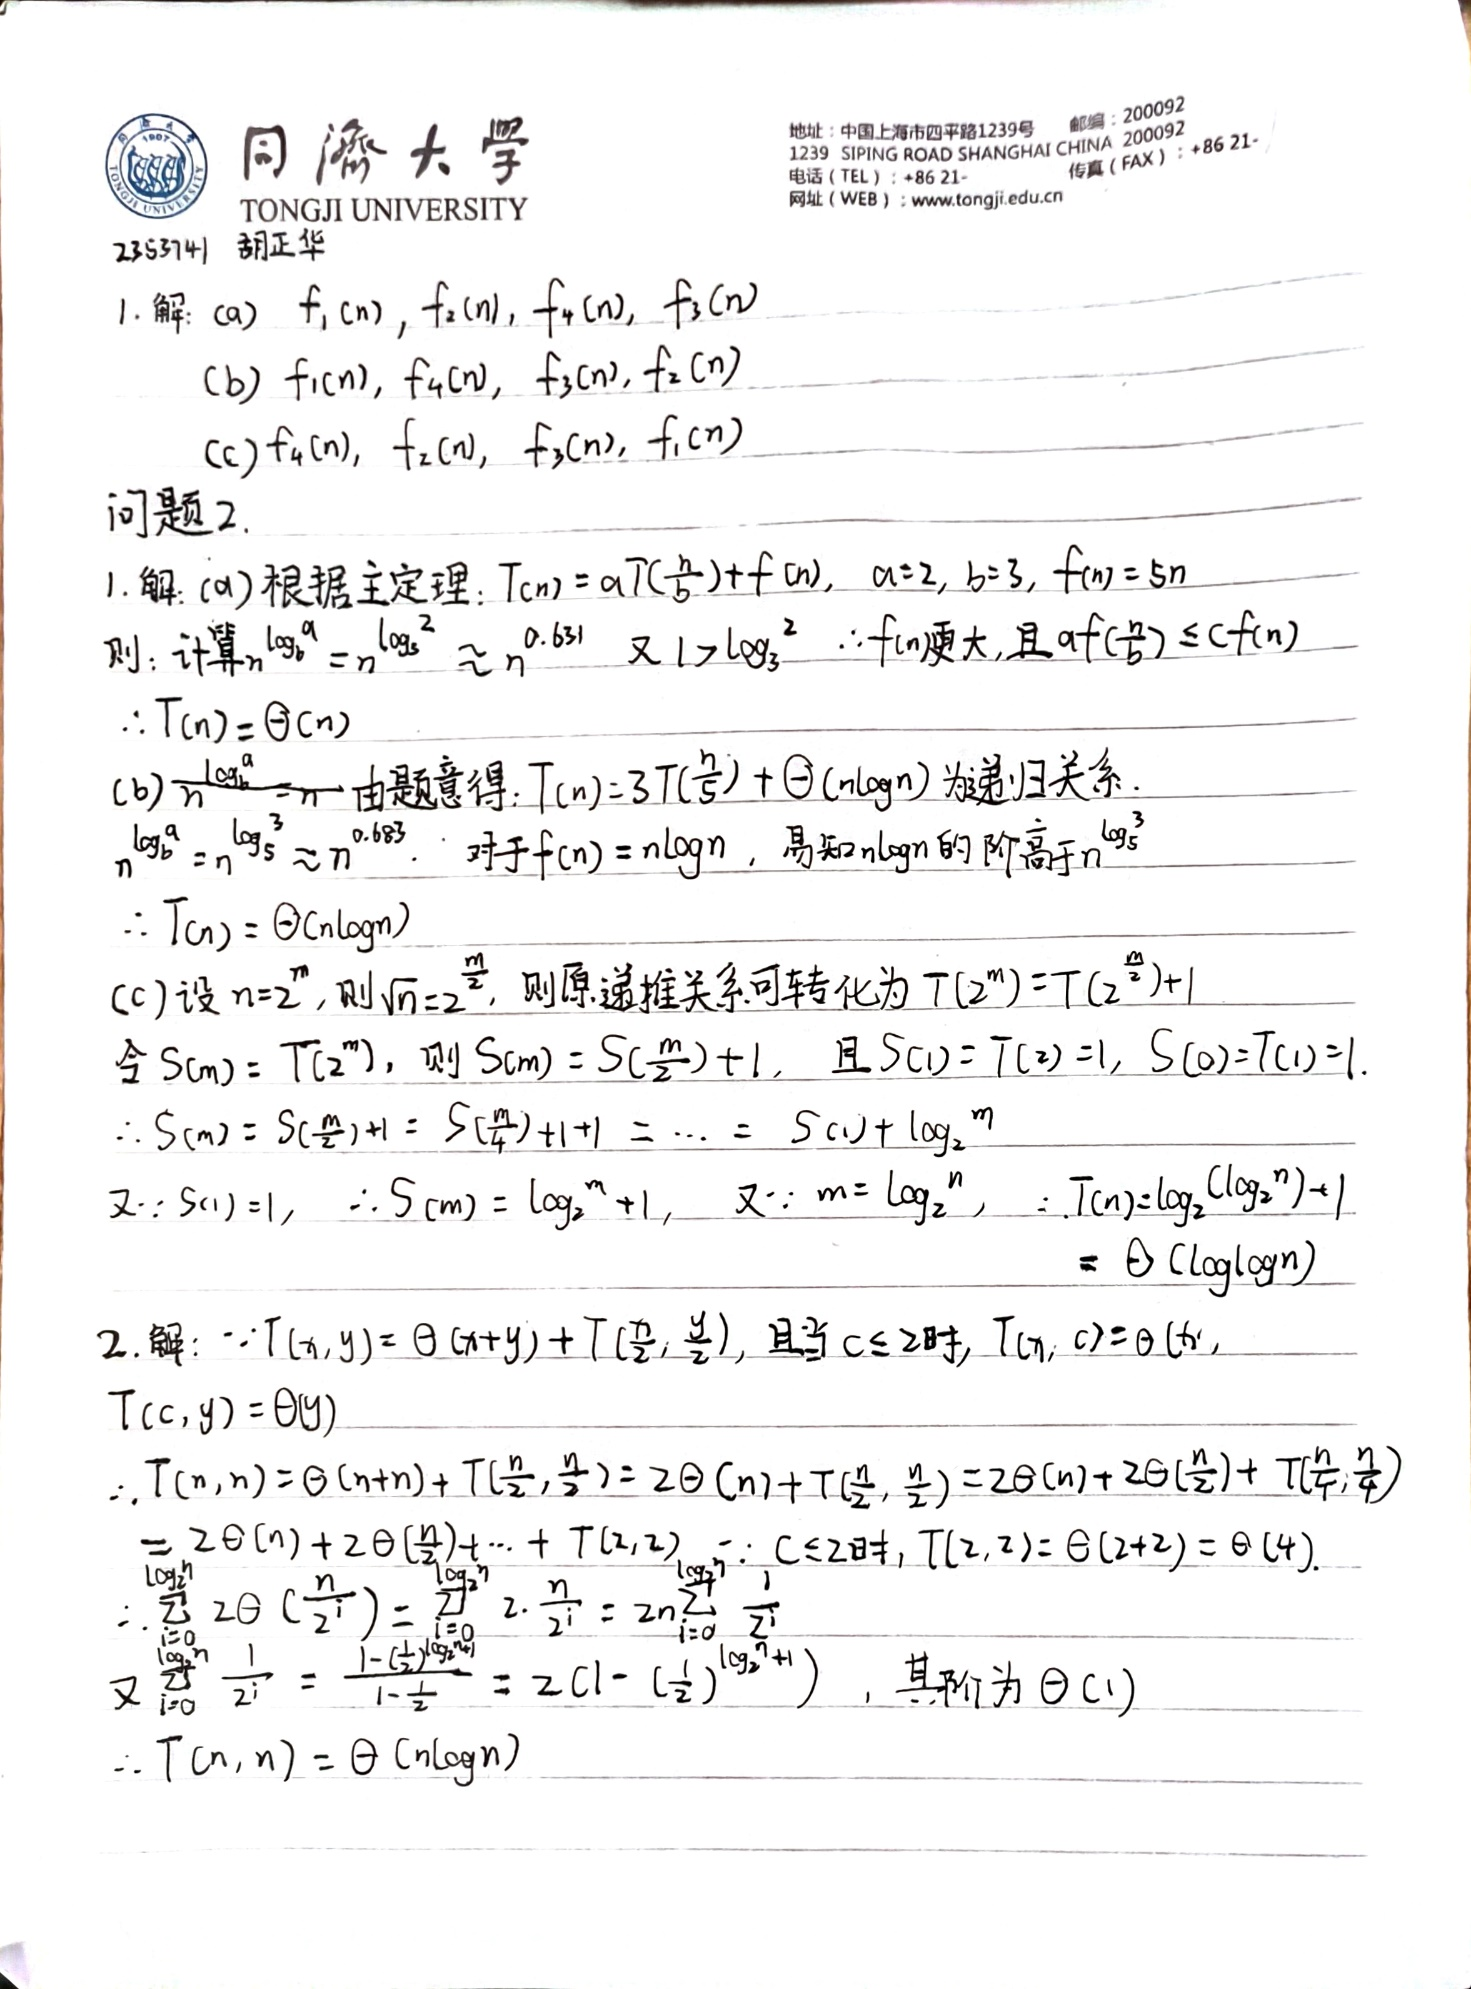 同濟大學
TONGJI UNIVERSITY
地址：中国上海市四平路1239号 邮编：200092
1239 SIPING ROAD SHANGHAI CHINA 200092
电话（TEL）：+86 21- 传真（FAX）：+86 21-
网址（WEB）：www.tongji.edu.cn
2353741 胡正华
1. 解: (a) f₁(n), f₂(n), f₄(n), f₃(n)
(b) f₁(n), f₄(n), f₃(n), f₂(n)
(c) f₄(n), f₂(n), f₃(n), f₁(n)
问题2.
1. 解: (a) 根据主定理: T(n) = aT(n/b) + f(n), a=2, b=3, f(n) = 5n
则: 计算n^(log_b^a) = n^(log_3^2) ≈ n^0.631 又 1 > log_3^2 ∴ f(n)更大, 且 af(n/b) ≤ cf(n)
∴ T(n) = Θ(n)
(b) 由题意得: T(n) = 3T(n/5) + Θ(nlogn) 为递归关系.
n^(log_b^a) = n^(log_5^3) ≈ n^0.683. 对于f(n) = nlogn, 易知nlogn的阶高于n^(log_5^3)
∴ T(n) = Θ(nlogn)
(c) 设 n=2^m, 则√n=2^(m/2), 则原递推关系可转化为 T(2^m) = T(2^(m/2)) + 1
令 S(m) = T(2^m), 则 S(m) = S(m/2) + 1, 且 S(1) = T(2) = 1, S(0) = T(1) = 1.
∴ S(m) = S(m/2) + 1 = S(m/4) + 1 + 1 = ... = S(1) + log_2^m
又∵ S(1) = 1, ∴ S(m) = log_2^m + 1, 又∵ m = log_2^n, ∴ T(n) = log_2(log_2^n) + 1
= Θ(loglogn)
2. 解: ∵ T(x, y) = Θ(x+y) + T(x/2, y/2), 且当 c ≤ 2时, T(x, c) = Θ(x),
T(c, y) = Θ(y)
∴ T(n, n) = Θ(n+n) + T(n/2, n/2) = 2Θ(n) + T(n/2, n/2) = 2Θ(n) + 2Θ(n/2) + T(n/4, n/4)
= 2Θ(n) + 2Θ(n/2) + ... + T(2,2) ∵ c ≤ 2时, T(2,2) = Θ(2+2) = Θ(4).
∴ Σ_{i=0}^{log_2^n} 2Θ(n/2^i) = Σ_{i=0}^{log_2^n} 2·n/2^i = 2n Σ_{i=0}^{log_2^n} 1/2^i
又 Σ_{i=0}^{log_2^n} 1/2^i = (1-(1/2)^(log_2^n+1))/(1-1/2) = 2(1-(1/2)^(log_2^n+1)), 其阶为 Θ(1)
∴ T(n, n) = Θ(nlogn)